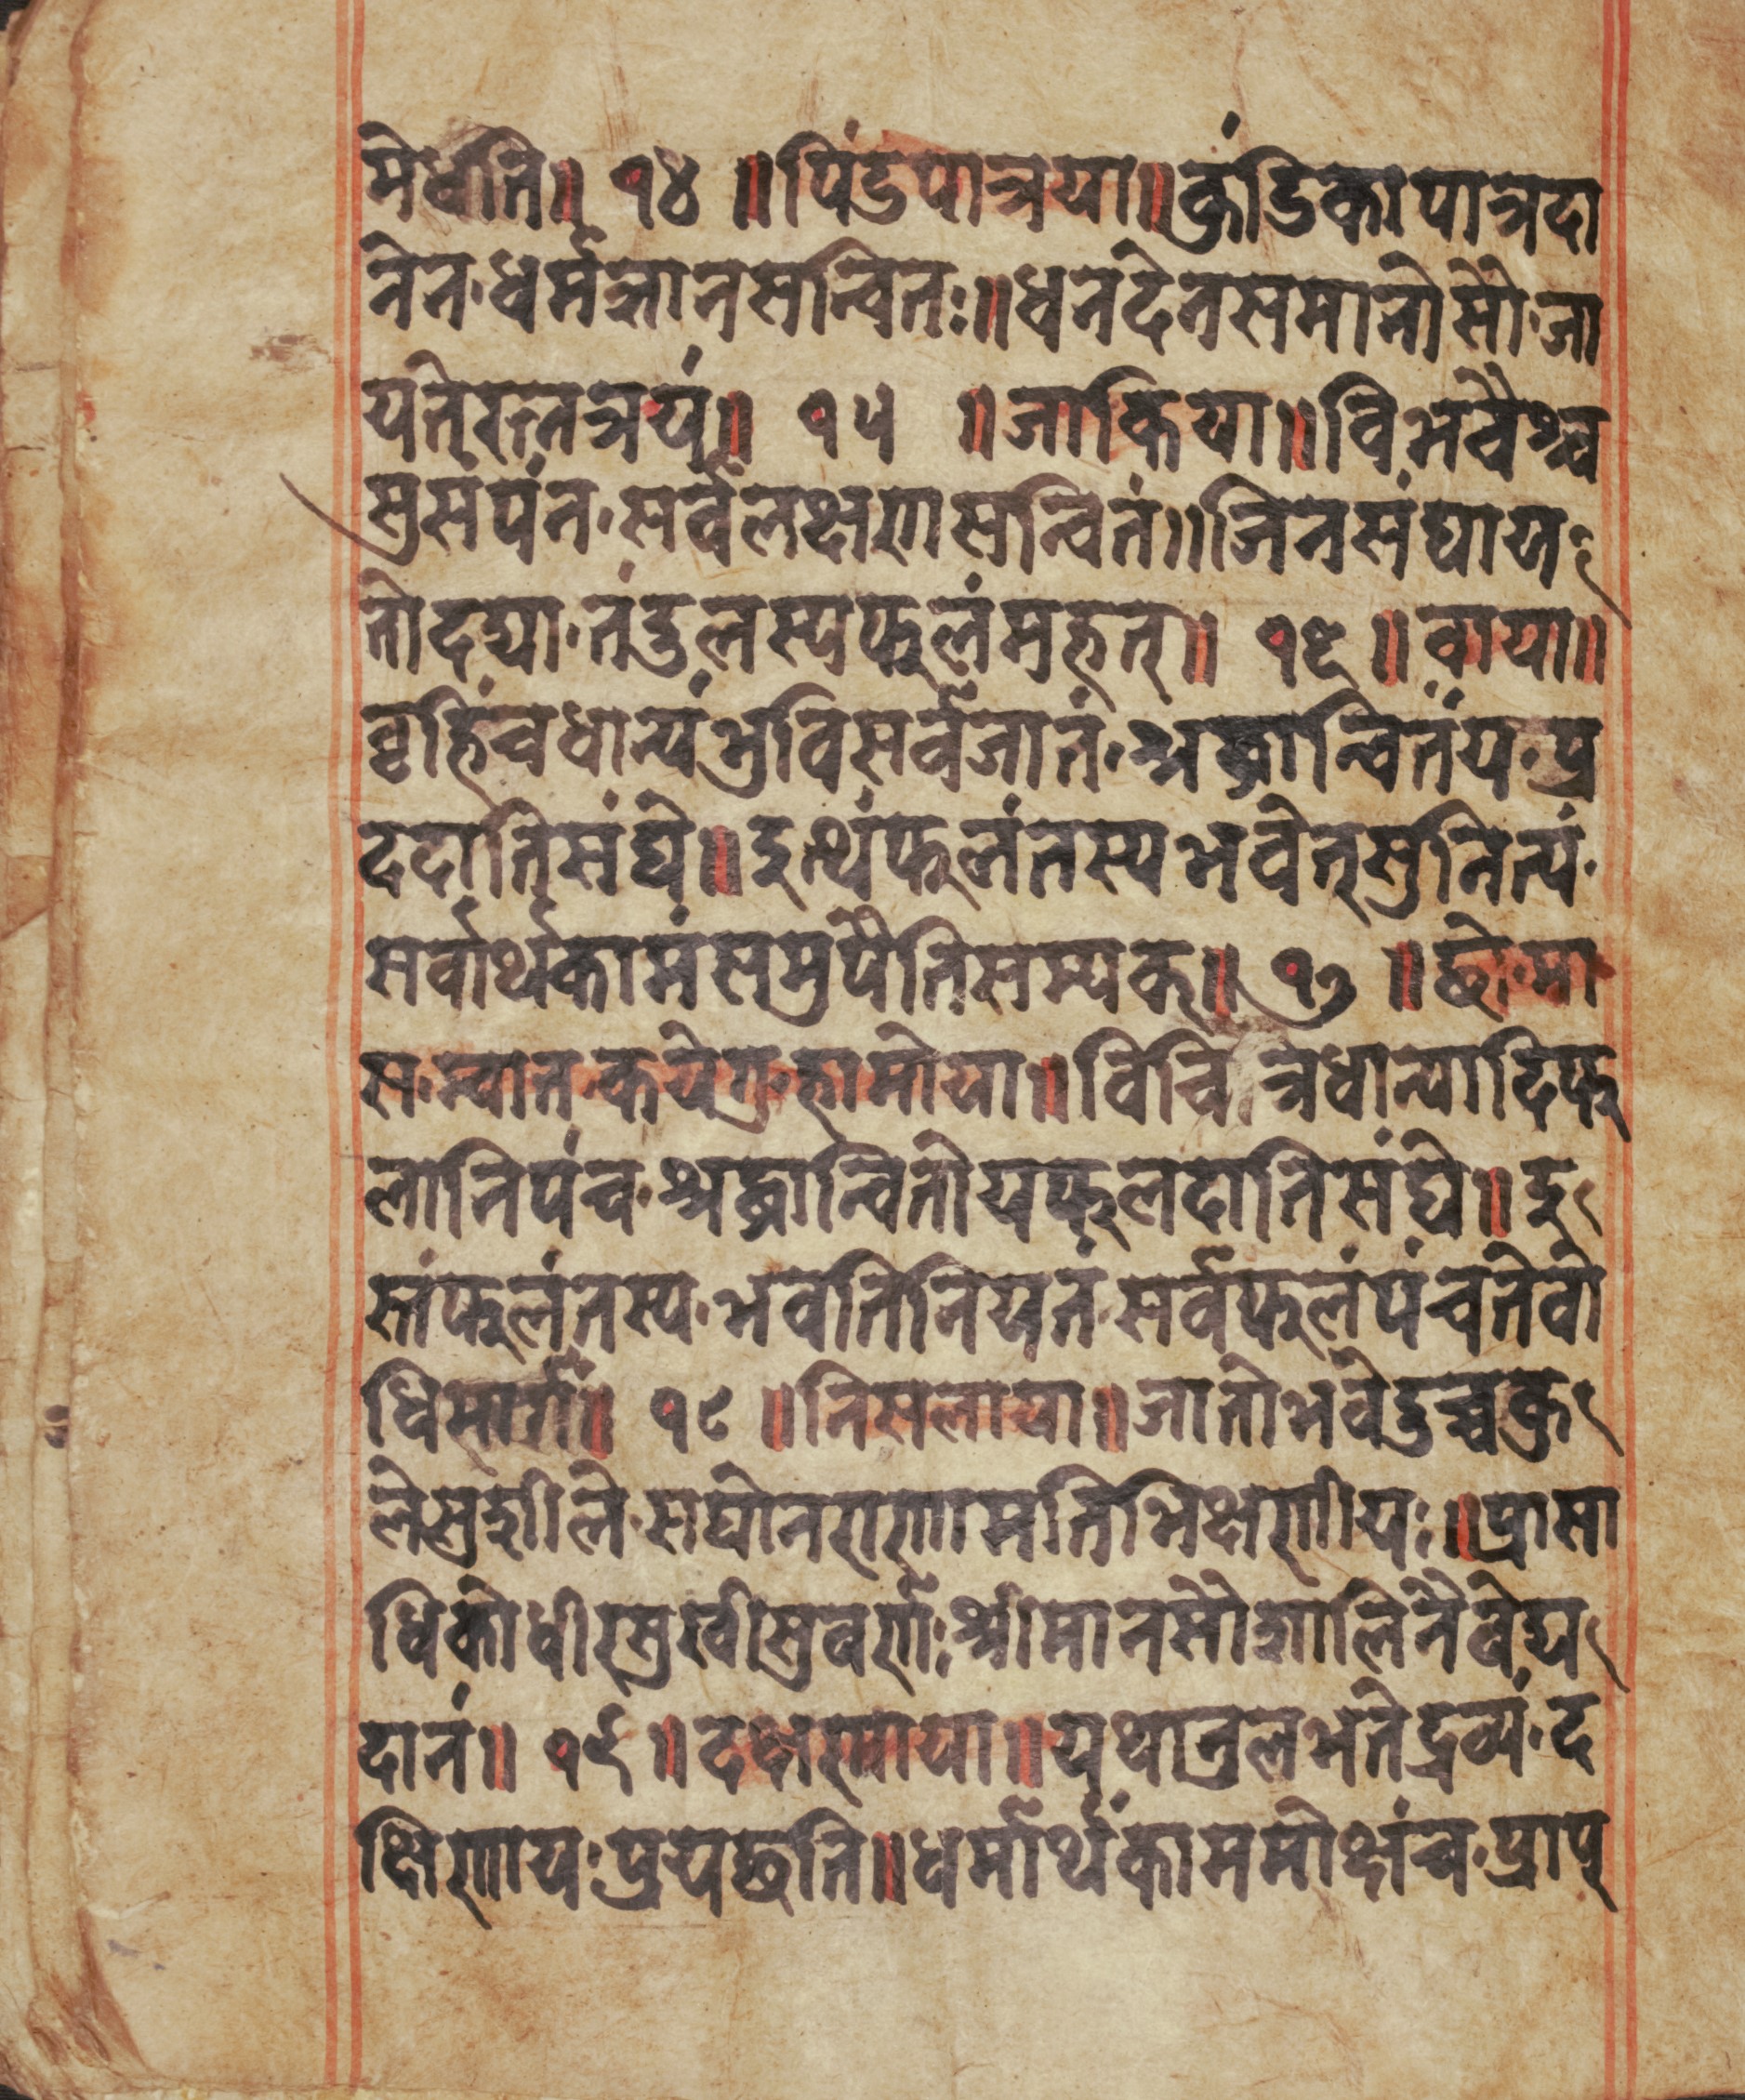 मेर्धति॥ १४ ॥पिंडपात्रया॥कुंडिकापात्रदा
नेन·धर्मज्ञानसन्वितः॥धनदेनसमानोसौ·जा
यतेरत्नत्रयं॥ १५ ॥जाकिया॥विभवैश्च
सुसंपंन·सर्वलक्षणसन्वितं॥जिनसंघाय
तोदद्या·तंडुलस्यफलंमहत्॥ १६ ॥वाया॥
वृहिंचधान्यंभुविसर्वजातं·श्रद्धान्वितंय·प्र
ददातिसंघे॥इत्थंफलंतस्यभवेत्सुनित्यं·
सर्वार्थकामंसमुपैतिसम्यक्॥ १७ ॥छो·मा
स·म्वात·कयेगु·हामोया॥विचित्रधान्यादिफ
लानिपंच·श्रद्धान्वितोयफलदातिसंघे॥इ
त्तंफलंतस्य·भवतिनियतं·सर्वफलंपंचतेवो
धिमार्गं॥ १८ ॥निसलाया॥जातोभवेदुच्चकु
लेसुशीले·सघोनराणामतिभिक्षणीयः॥प्रासा
धिकोधीरसुखीसुवर्णः·श्रीमानसौशालिनैवेद्य
दानं॥ १९ ॥दक्षणाया॥यथानुलभतेद्रव्यं·द
क्षिणायःप्रयछति॥धर्मार्थंकाममोक्षंच·प्राप्